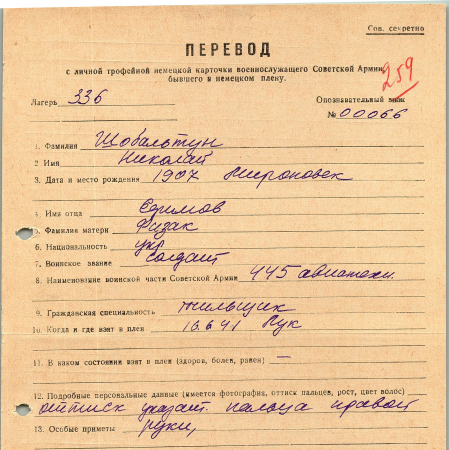 Сов. секретно
ПЕРЕВОД
с личной трофейной немецкой карточки военнослужащего Советской Армии,
бывшего в немецком плену.
259
Лагерь 336
Опознавательный знак
№ 00066
1. Фамилия Щобальтун
2 Имя Николай
3. Дата и место рождения 1907 Мироновек
4. Имя отца Ефимов
5. Фамилия матери Физак
6. Национальность укр
7. Воинское звание солдат
8. Наименование воинской части Советской Армии 445 авиатехн.
9. Гражданская специальность
10. Когда и где взят в плен 16.6 41
11. В каком состоянии взят в плен (здоров, болен, ранен) —
12. Подробные персональные данные (имеется фотография, оттиск пальцев, рост, цвет волос)
оттиск указат. пальца правой
13. Особые приметы руки,